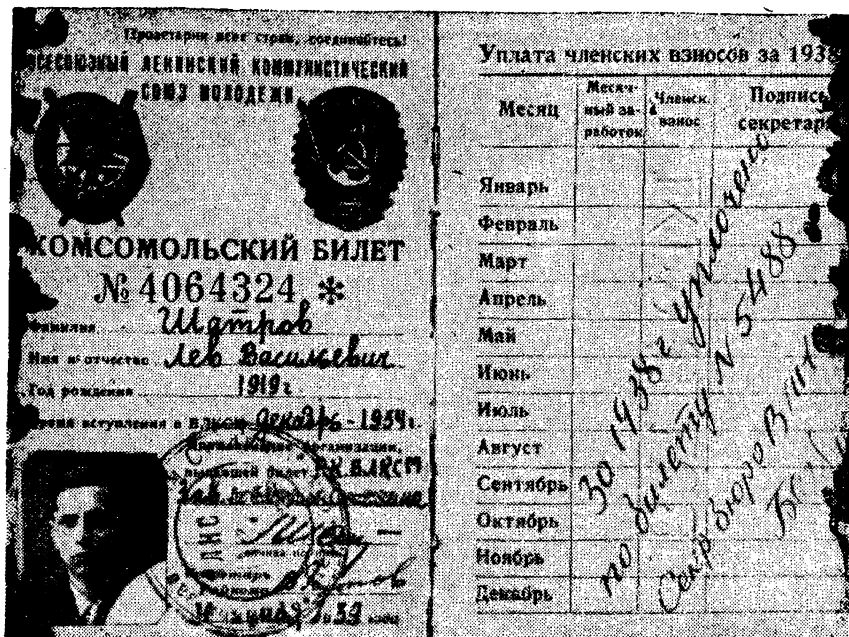 Пролетарии всех стран, соединяйтесь!
ВСЕСОЮЗНЫЙ ЛЕНИНСКИЙ КОММУНИСТИЧЕСКИЙ
СОЮЗ МОЛОДЕЖИ
КОМСОМОЛЬСКИЙ БИЛЕТ
№ 4064324 *
Фамилия Шатров
Имя и отчество Лев Васильевич
Год рождения 1919 г.
Время вступления в ВЛКСМ декабрь - 1934 г.
организации,
выдавшей билет РК ВЛКСМ
Уплата членских взносов за 1938
Месяц
Месяч-
ный за-
работок
Членск.
взнос
Подпись
секретар
Январь
Февраль
Март
Апрель
Май
Июнь
Июль
Август
Сентябрь
Октябрь
Ноябрь
Декабрь
За 1938 г уплочено
по билету N 5488
Секр Бюро ВЛКС